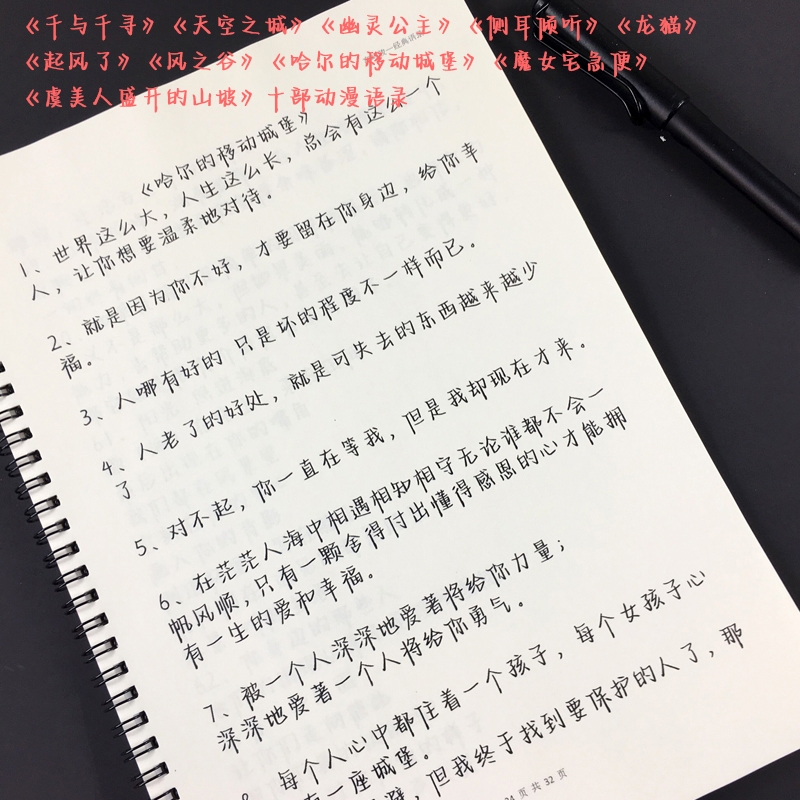 《千与千寻》《天空之城》《幽灵公主》《侧耳倾听》《龙猫》
《起风了》《风之谷》《哈尔的移动城堡》《魔女宅急便》
《虞美人盛开的山坡》十部动漫语录
《哈尔的移动城堡》
1、世界这么大，人生这么长，总会有这么一个
人，让你想要温柔地对待。
2、就是因为你不好，才要留在你身边，给你幸
福。
3、人哪有好的 只是坏的程度不一样而已。
4、人老了的好处，就是可失去的东西越来越少
了
5、对不起，你一直在等我，但是我却现在才来。
6、在茫茫人海中相遇相知相守无论谁都不会一
帆风顺，只有一颗舍得付出懂得感恩的心才能拥
有一生的爱和幸福。
7、被一个人深深地爱著将给你力量；
深深地爱著一个人将给你勇气。
8、每个人心中都住着一个孩子，每个女孩子心
有一座城堡。
避，但我终于找到要保护的人了，那
24 页 共 32 页